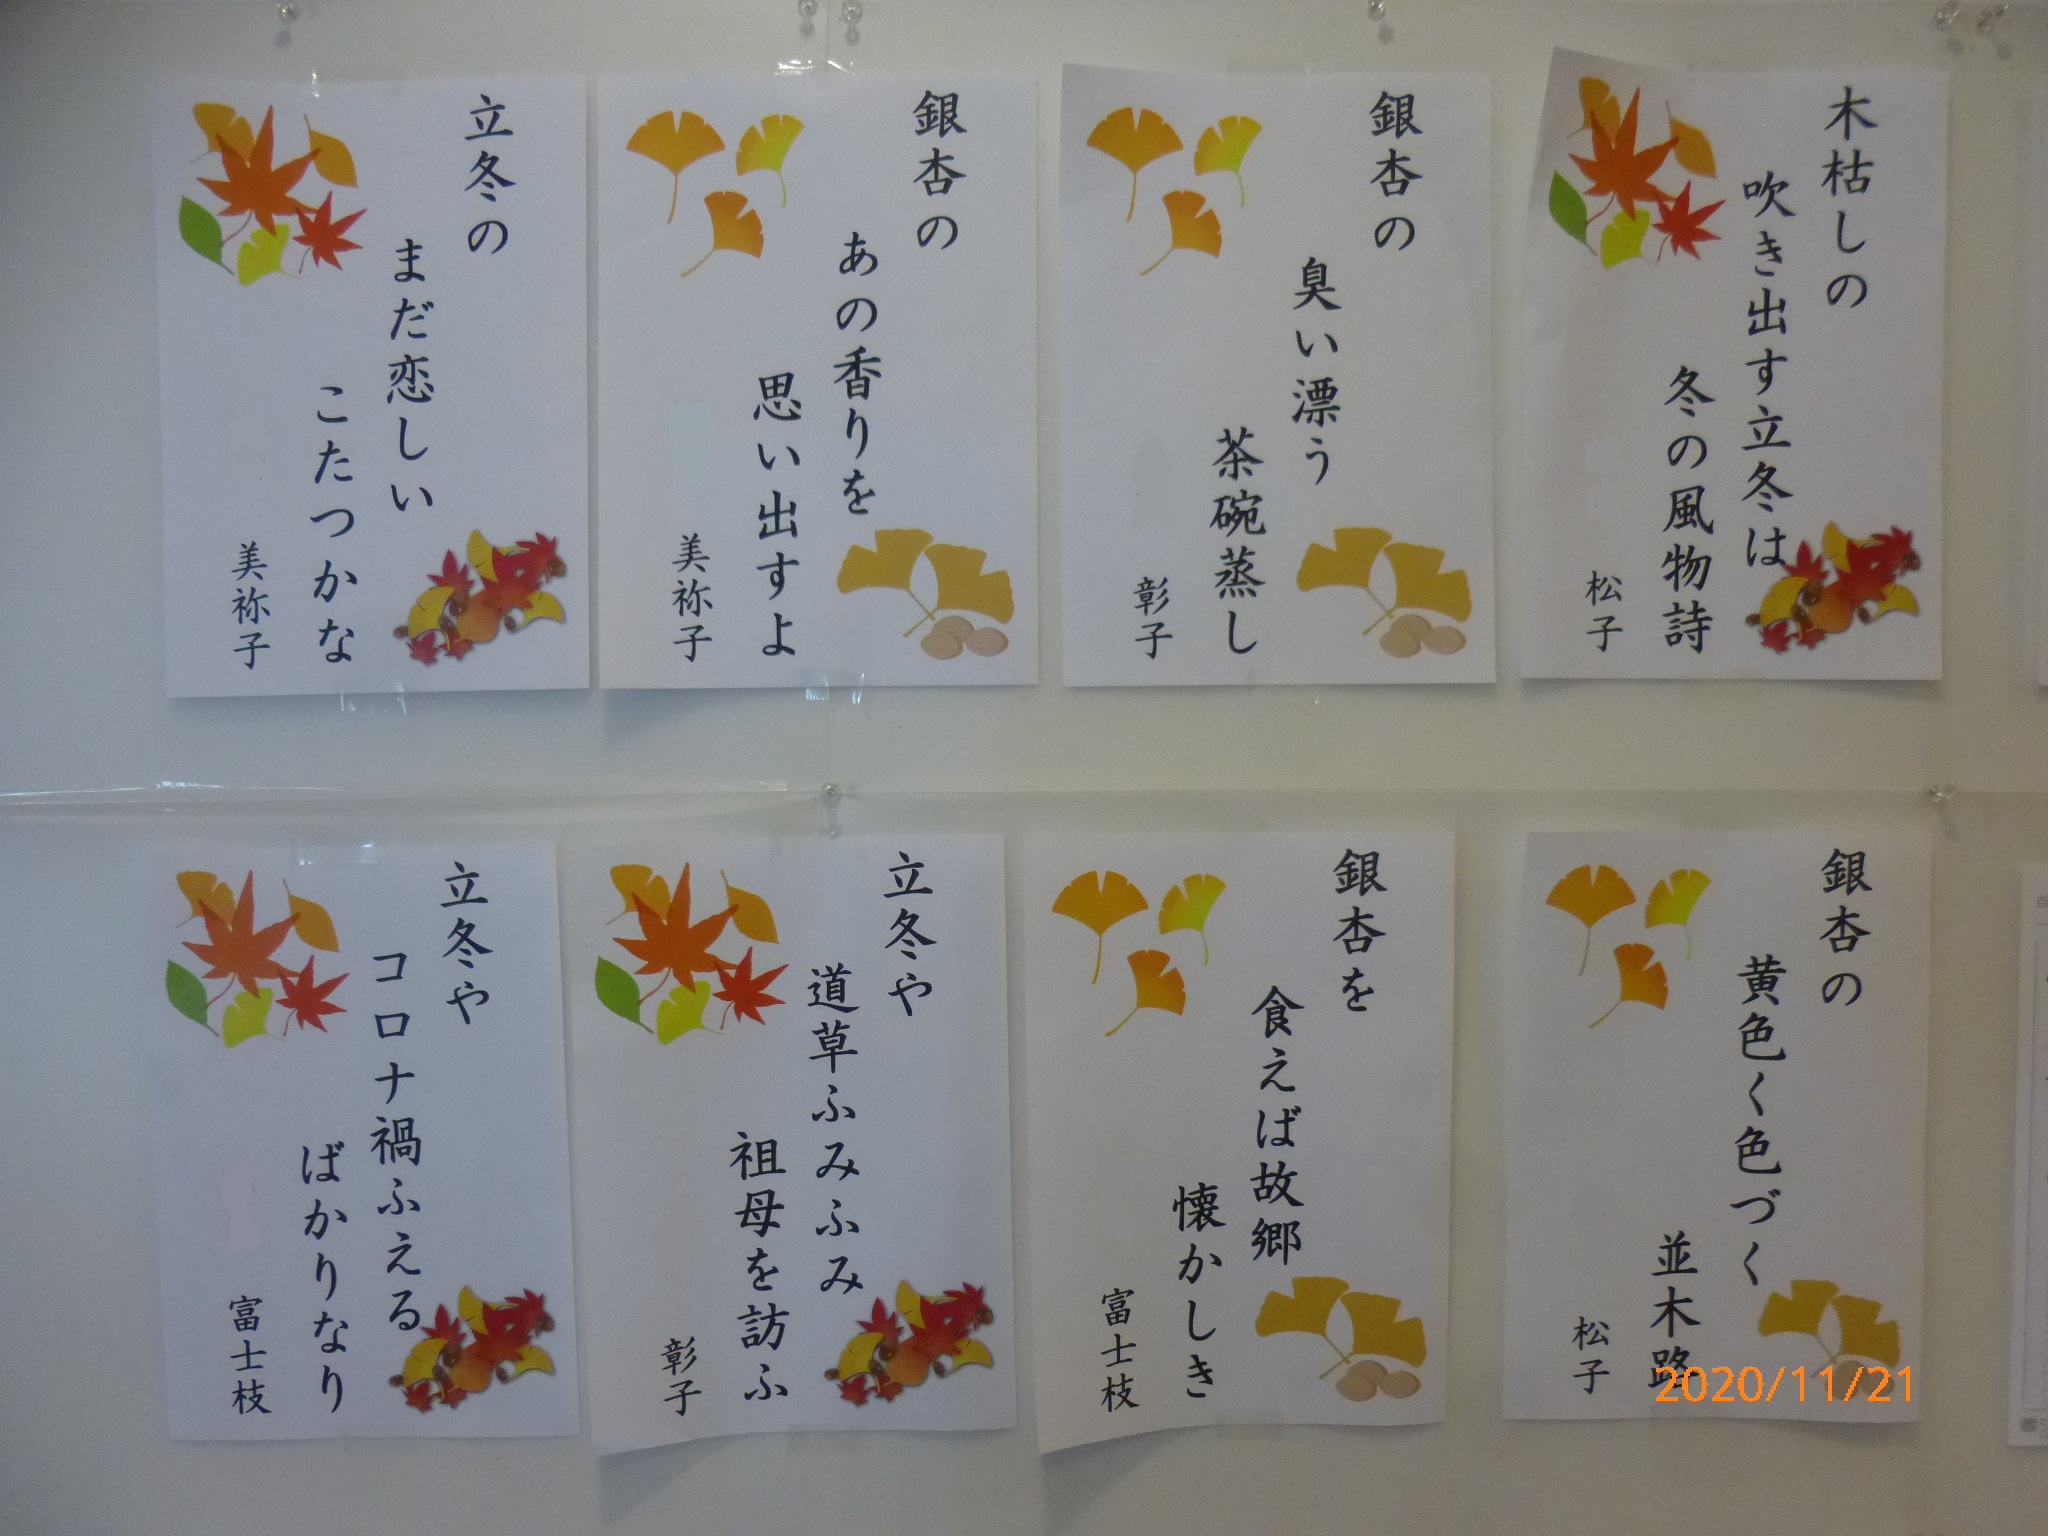 木枯しの
吹き出す立冬は
冬の風物詩
松子
銀杏の
臭い漂う
茶碗蒸し
彰子
銀杏の
あの香りを
思い出すよ
美祢子
立冬の
まだ恋しい
こたつかな
美祢子
銀杏の
黄色く色づく
並木路
松子
銀杏を
食えば故郷
懐かしき
富士枝
立冬や
道草ふみふみ
祖母を訪ふ
彰子
立冬や
コロナ禍ふえる
ばかりなり
富士枝
2020/11/21